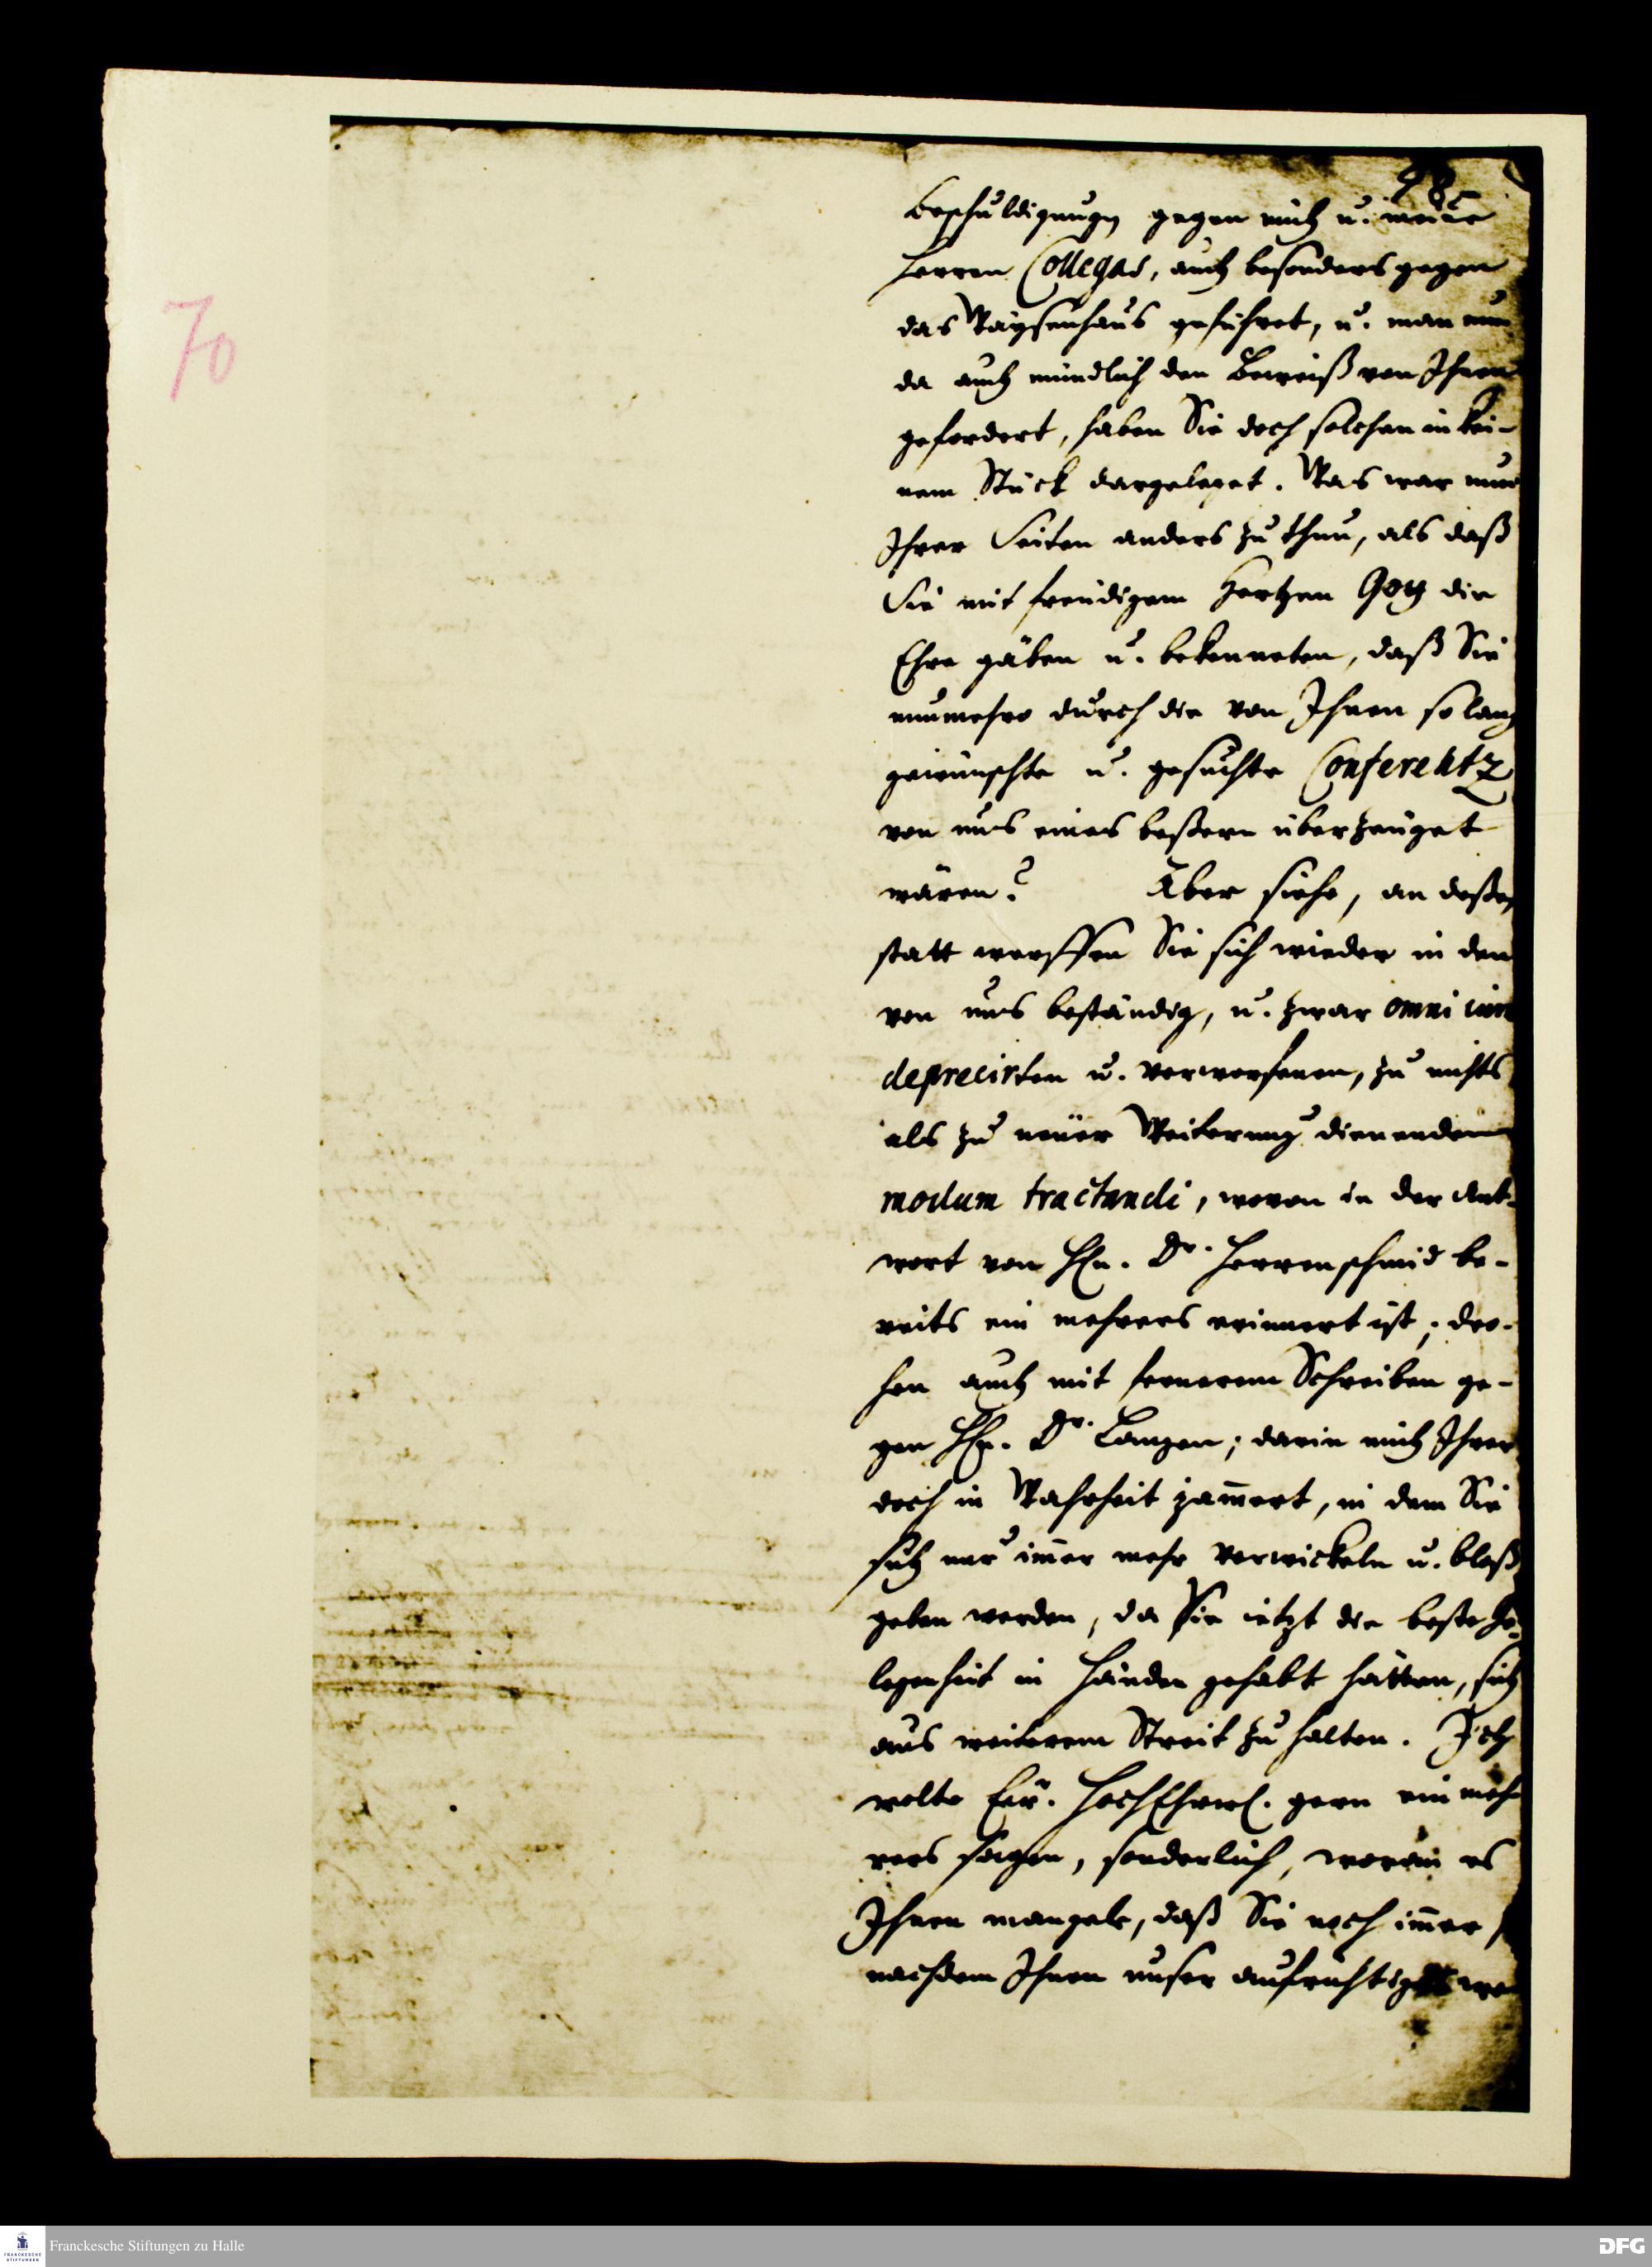 98
70
beschuldigungen gegen mich u. meine
Herren Collegas, auch besonders gegen
das Waysenhaus geführet, u. man nun
da auch mündlich den Beweiß von Ihnen
gefordert, haben Sie doch solchen in kei-
nem Stück dargeleget. Was war nun
Ihrer Seiten anders zu thun, als daß
Sie mit freudigem Hertzen Gott die
Ehre gäben u. bekenneten, daß Sie
nunmehro durch die von Ihnen so lang
gewünschte u. gesuchte Conferentz
von uns eines beßern überzeuget
wären? Aber siehe, an deßen
statt werffen Sie sich wieder in den
von uns beständig, u. zwar omni iure
deprecirten u. verworfenen, zu nichts
als zu neuer Weiterung dienenden
modum tractandi, wovon in der Ant-
wort von Hn. Dr. Herrenschmid be-
reits ein mehrers erinnert ist; dro-
hen auch mit fernerem Schreiben ge-
gen Hn. Dr. Langen; darin mich Ihrer
doch in Wahrheit jam̅ert, in dem Sie
sich nur im̅er mehr verwickeln u. bloß
geben werden, da Sie ietzt die beste Ge-
legenheit in Händen gehabt hätten, sich
aus weiterem Streit zu halten. Ich
wolte Eur. HochEhrw. gern ein meh
rers sagen, sonderlich, woran es
Ihnen mangele, daß Sie noch im̅er
nachdem Ihnen unser aufrichtiges
Franckesche Stiftungen zu Halle
FRANCKESCHE STIFTUNGEN
DFG